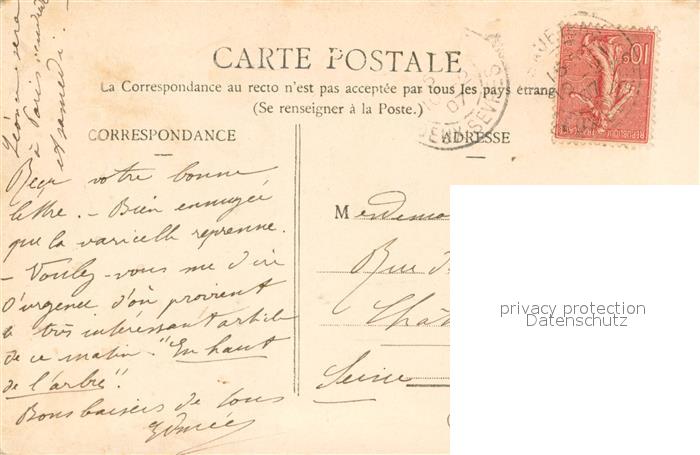 Léonie sera
à Paris vendredi
et samedi.
CARTE POSTALE
La Correspondance au recto n'est pas acceptée par tous les pays étrang
(Se renseigner à la Poste.)
CORRESPONDANCE
ADRESSE
10c
REPUBLIQUE FRANÇAISE
07
DEUX-SEVRES
Reçu votre bonne
lettre. - Bien ennuyée
que la varicelle reprenne.
- Voulez-vous me dire
d'urgence d'où provient
le très intéressant article
de ce matin. "En haut
de l'arbre".
Bons baisers de tous
Edmée
Mesdemo
Rue d
Chât
Seine
privacy protection
Datenschutz